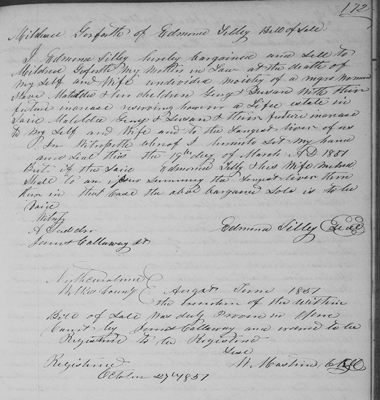 172
Mildred Goforth of Edmund Tilley Bill of Sale
I Edmund Tilley hereby bargained and sell to
Mildred Goforth my Mother in Law at the death of
my self and Wife undivided moiety of a negro Woman
slave Matilda & two children George & Susan with their
future increase reserving however a Life estate in
said Matilda George & Susan & their future increase
to my self and Wife and to the longest liver of us
In Witness whereof I hereunto set my hand
and seal this the 19th day of March AD 1851
But if the said Edmund Tilley & his Wife
shall the longest liver
in that case the above bargained Sold is to be
Void
Witness
A Edmund Tilley Seal
James Callaway
North Carolina
Wilkes County August Term 1851
the execution of the within
Bill of Sale was duly proven in open
Court by James Callaway and ordered to be
Registered to be Registered
Test
Registered W. Mastin Clk
October 27th 1851